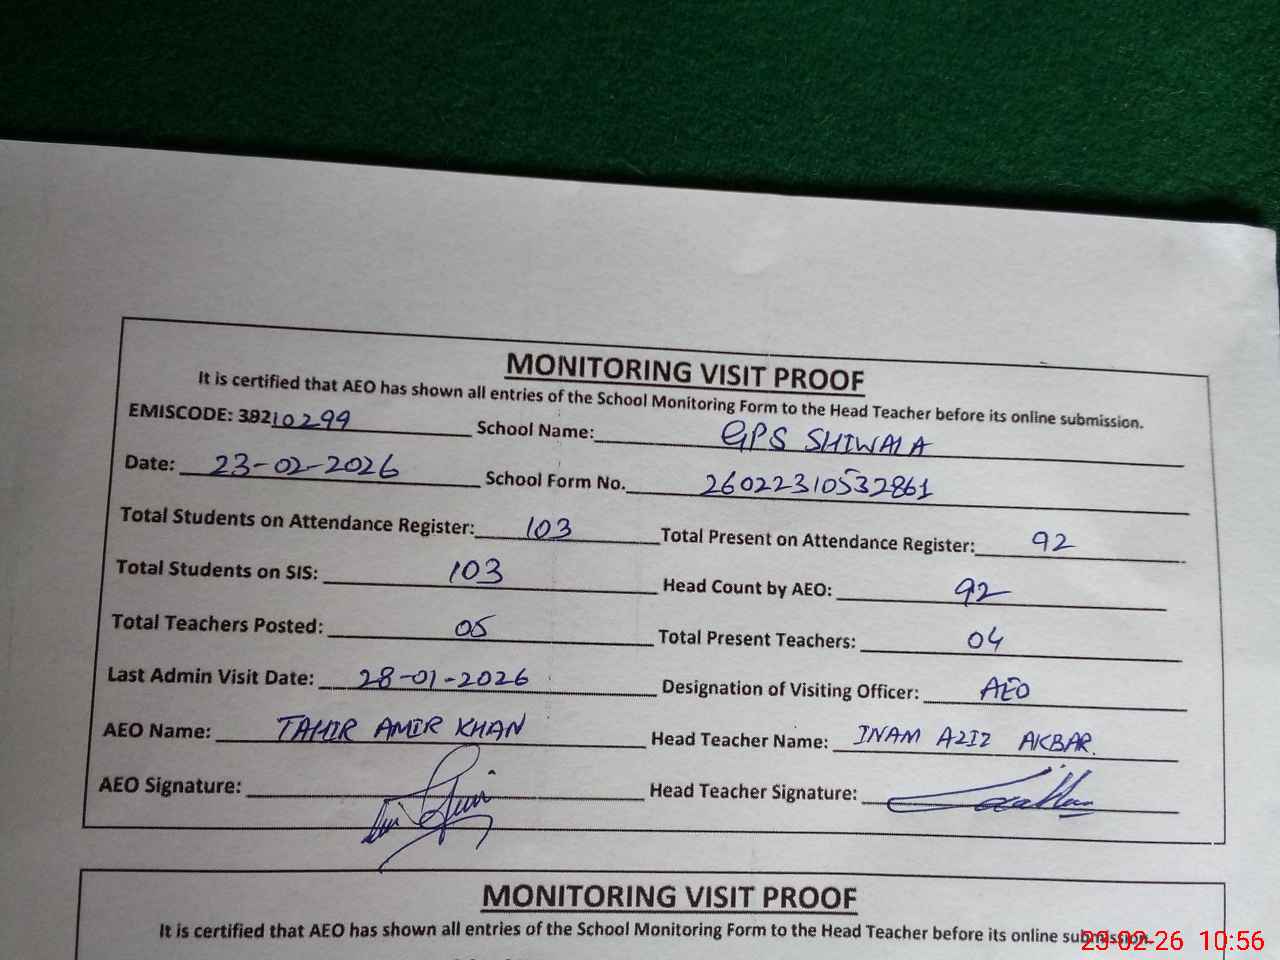 MONITORING VISIT PROOF
It is certified that AEO has shown all entries of the School Monitoring Form to the Head Teacher before its online submission.
EMISCODE: 39210299 School Name: GPS SHIWALA
Date: 23-02-2026 School Form No. 26022310532861
Total Students on Attendance Register: 103 Total Present on Attendance Register: 92
Total Students on SIS: 103 Head Count by AEO: 92
Total Teachers Posted: 05 Total Present Teachers: 04
Last Admin Visit Date: 28-01-2026 Designation of Visiting Officer: AEO
AEO Name: TAHIR AMIR KHAN Head Teacher Name: INAM AZIZ AKBAR.
AEO Signature: Head Teacher Signature:
MONITORING VISIT PROOF
It is certified that AEO has shown all entries of the School Monitoring Form to the Head Teacher before its online submission.
23-02-26 10:56